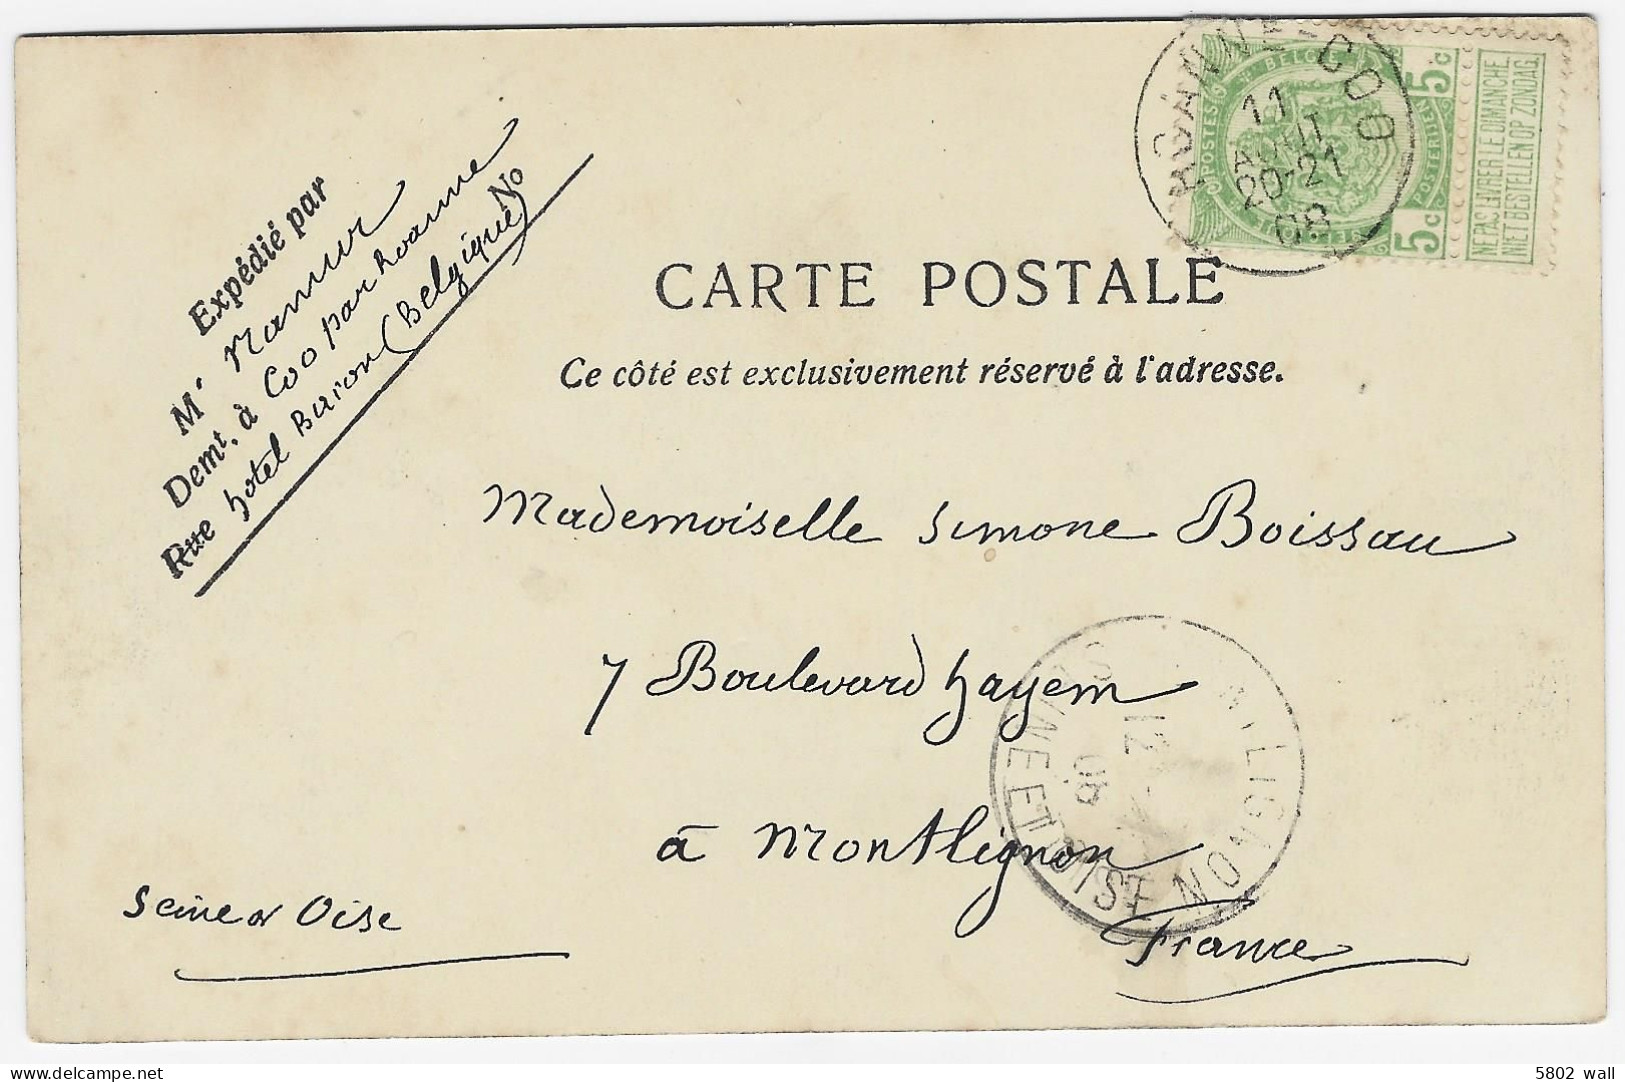 ROANNE-COO
11
AOUT
20-21
08
POSTES
BELGIE
BELGIQUE
POSTERIJEN
5c
5c
NE PAS LIVRER LE DIMANCHE
NIET BESTELLEN OP ZONDAG
Expédié par
Mr Namur
Demt. à Coo par Roanne
Rue hotel Baron (Belgique) No
CARTE POSTALE
Ce côté est exclusivement réservé à l'adresse.
Mademoiselle Simone Boissau
7 Boulevard hayem
à Montlignon
Seine et Oise
France
MONTLIGNON
SEINE ET OISE
12
08
5802 wall